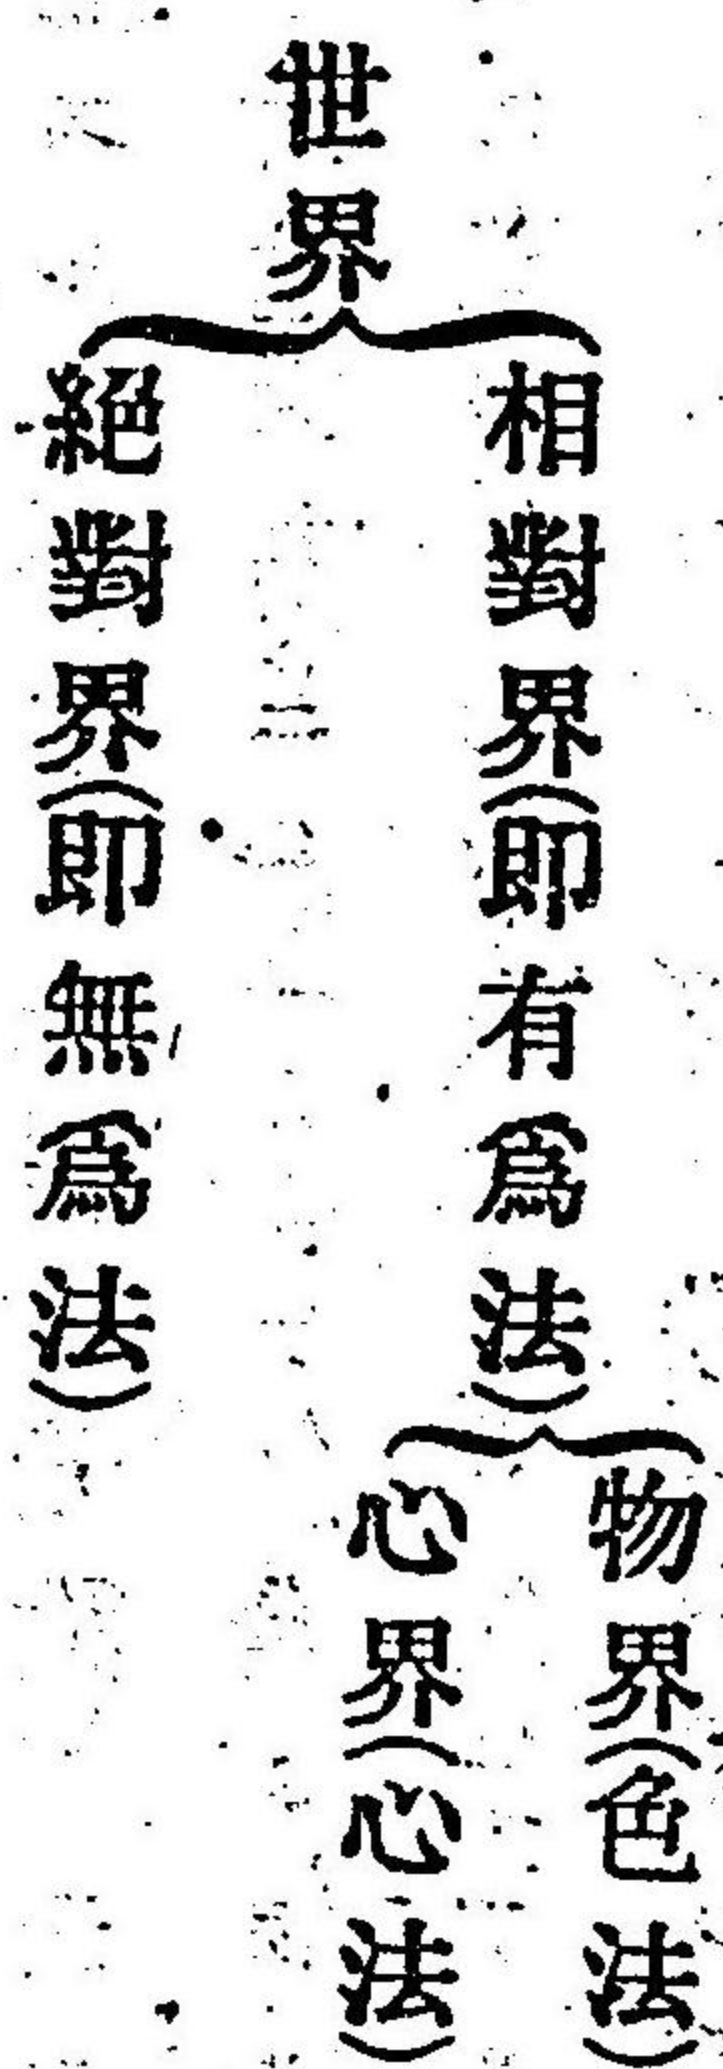 世界
相對界(即有爲法)
物界(色法)
心界(心法)
絕對界(即無爲法)